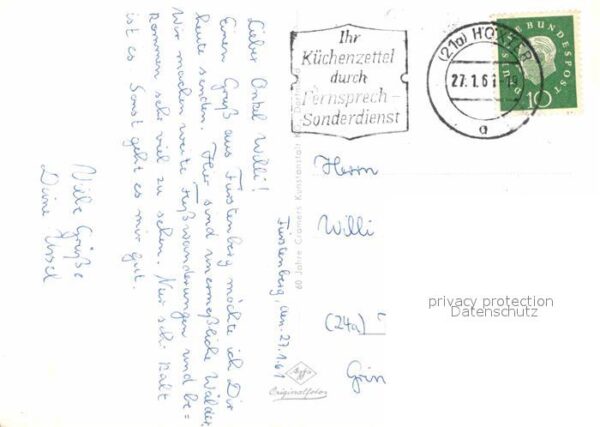 Fürstenberg, den 27.1.61
Lieber Onkel Willi!
Einen Gruß aus Fürstenberg möchte ich Dir
heute senden. Hier sind unermeßliche Wälder.
Wir machen weite Fußwanderungen und be=
kommen sehr viel zu sehen. Nur sehr kalt
ist es. Sonst geht es mir gut.
Viele Grüße
Deine Ursel
60 Jahre Cramers Kunstanstalt Dortmund
Agfa
Originalfoto
Ihr
Küchenzettel
durch
Fernsprech-
Sonderdienst
(21a) HÖXTER
27.1.61
a
DEUTSCHE BUNDESPOST
10
Herrn
Willi
(24a)
privacy protection
Datenschutz